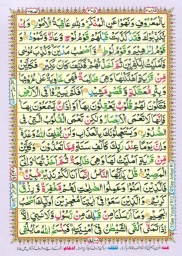 بِالْمَعْرُوفِ وَنَهَوْا عَنِ الْمُنْكَرِ وَلِلَّهِ عَاقِبَةُ الْأُمُورِ وَإِنْ
يُكَذِّبُوكَ فَقَدْ كَذَّبَتْ قَبْلَهُمْ قَوْمُ نُوحٍ وَعَادٌ وَثَمُودُ
وَقَوْمُ إِبْرَاهِيمَ وَقَوْمُ لُوطٍ وَأَصْحَابُ مَدْيَنَ وَكُذِّبَ مُوسَى
فَأَمْلَيْتُ لِلْكَافِرِينَ ثُمَّ أَخَذْتُهُمْ فَكَيْفَ كَانَ نَكِيرِ فَكَأَيِّنْ
مِنْ قَرْيَةٍ أَهْلَكْنَاهَا وَهِيَ ظَالِمَةٌ فَهِيَ خَاوِيَةٌ عَلَى عُرُوشِهَا
وَبِئْرٍ مُعَطَّلَةٍ وَقَصْرٍ مَشِيدٍ أَفَلَمْ يَسِيرُوا فِي الْأَرْضِ
فَتَكُونَ لَهُمْ قُلُوبٌ يَعْقِلُونَ بِهَا أَوْ آذَانٌ يَسْمَعُونَ بِهَا
فَإِنَّهَا لَا تَعْمَى الْأَبْصَارُ وَلَكِنْ تَعْمَى الْقُلُوبُ الَّتِي فِي
الصُّدُورِ وَيَسْتَعْجِلُونَكَ بِالْعَذَابِ وَلَنْ يُخْلِفَ اللَّهُ وَعْدَهُ
وَإِنَّ يَوْمًا عِنْدَ رَبِّكَ كَأَلْفِ سَنَةٍ مِمَّا تَعُدُّونَ وَكَأَيِّنْ
مِنْ قَرْيَةٍ أَمْلَيْتُ لَهَا وَهِيَ ظَالِمَةٌ ثُمَّ أَخَذْتُهَا وَإِلَيَّ
الْمَصِيرُ قُلْ يَا أَيُّهَا النَّاسُ إِنَّمَا أَنَا لَكُمْ نَذِيرٌ مُبِينٌ
فَالَّذِينَ آمَنُوا وَعَمِلُوا الصَّالِحَاتِ لَهُمْ مَغْفِرَةٌ وَرِزْقٌ
كَرِيمٌ وَالَّذِينَ سَعَوْا فِي آيَاتِنَا مُعَاجِزِينَ أُولَئِكَ أَصْحَابُ
الْجَحِيمِ وَمَا أَرْسَلْنَا مِنْ قَبْلِكَ مِنْ رَسُولٍ وَلَا نَبِيٍّ إِلَّا
إِذَا تَمَنَّى أَلْقَى الشَّيْطَانُ فِي أُمْنِيَّتِهِ فَيَنْسَخُ اللَّهُ مَا